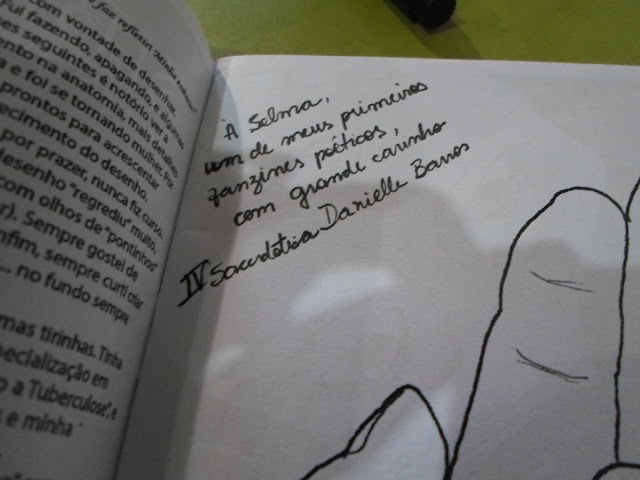 faz refletir! Minha
com vontade de desenhar.
Fui fazendo, apagando, e algumas
seguintes é notório ver a
na anatomia, mais detalhes
e foi se tornando mulher. Por
prontos para acrescentar
do desenho.
por prazer, nunca fiz curso.
desenho "regrediu" muito,
com olhos de "pontinhos"
Sempre gostei de
enfim, sempre curti criar
... no fundo sempre
mas tirinhas. Tinha
em
a Tuberculose", e
e minha
À Selma,
um de meus primeiros
fanzines poéticos,
com grande carinho
IV Sacerdotisa Danielle Barros